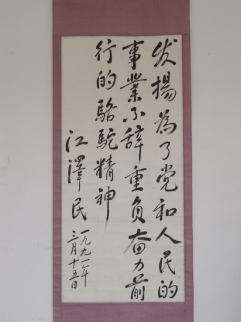 发扬為了党和人民的
事業不辞重负奋力前
行的駱駝精神
江澤民
一九九一年
三月十五日